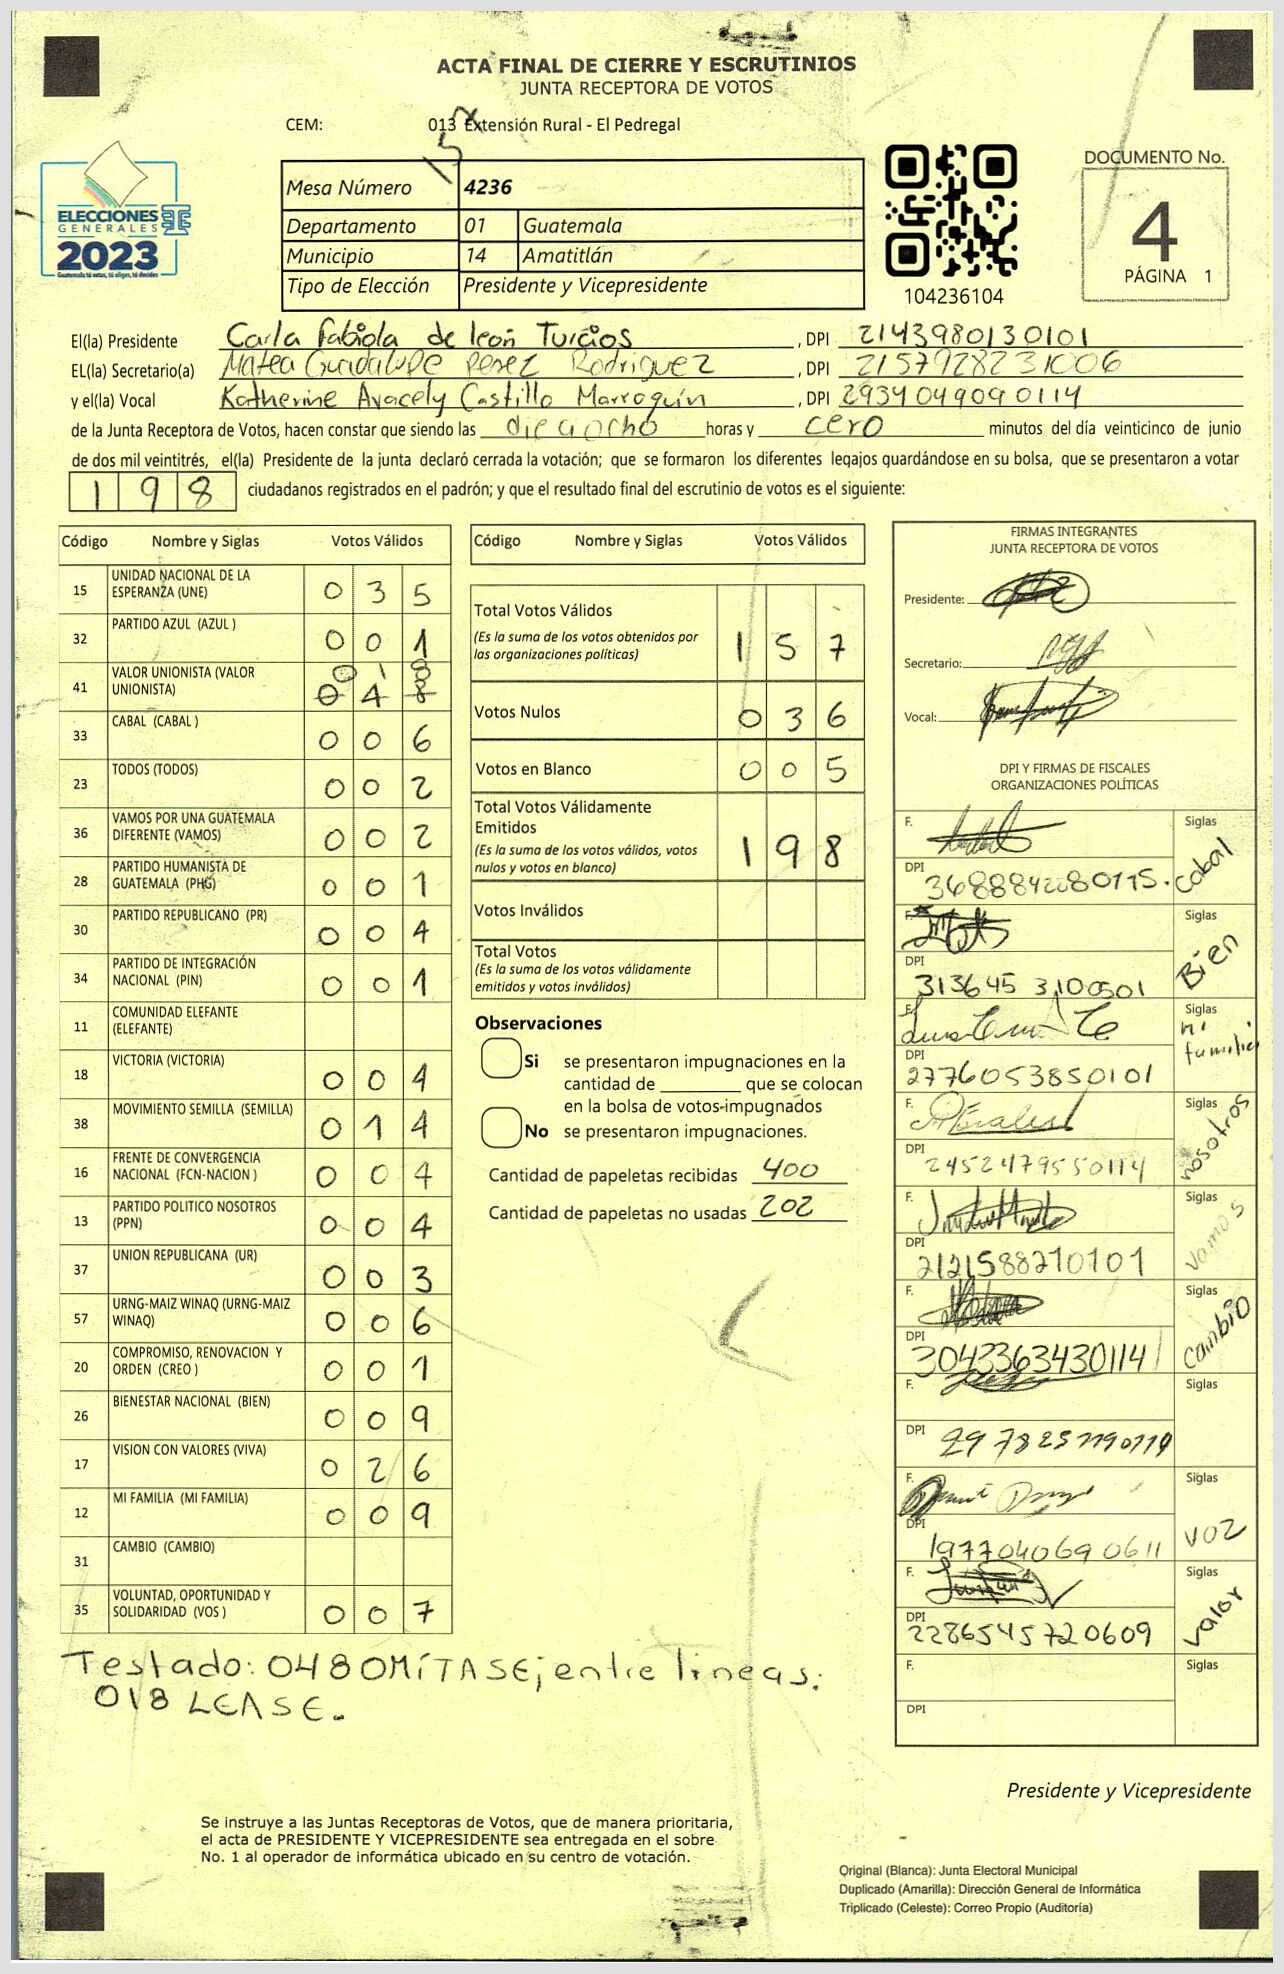 ACTA FINAL DE CIERRE Y ESCRUTINIOS
JUNTA RECEPTORA DE VOTOS
CEM: 013 Extensión Rural - El Pedregal
15
ELECCIONES
GENERALES
2023
Guatemala tú votas, tú eliges, tú decides
Mesa Número 4236
Departamento 01 Guatemala
Municipio 14 Amatitlán
Tipo de Elección Presidente y Vicepresidente
104236104
DOCUMENTO No.
4
PÁGINA 1
El(la) Presidente Carla Fabiola de león Turcios , DPI 2143980130101
EL(la) Secretario(a) Matea Guadalupe Perez Rodriguez , DPI 2157928231006
y el(la) Vocal Katherine Aracely Castillo Marroquín , DPI 2934049090114
de la Junta Receptora de Votos, hacen constar que siendo las dieciocho horas y cero minutos del día veinticinco de junio
de dos mil veintitrés, el(la) Presidente de la junta declaró cerrada la votación; que se formaron los diferentes legajos guardándose en su bolsa, que se presentaron a votar
198 ciudadanos registrados en el padrón; y que el resultado final del escrutinio de votos es el siguiente:
Código Nombre y Siglas Votos Válidos
15 UNIDAD NACIONAL DE LA ESPERANZA (UNE) 0 3 5
32 PARTIDO AZUL (AZUL ) 0 0 1
41 VALOR UNIONISTA (VALOR UNIONISTA) 0 4 8 0 1 8
33 CABAL (CABAL ) 0 0 6
23 TODOS (TODOS) 0 0 2
36 VAMOS POR UNA GUATEMALA DIFERENTE (VAMOS) 0 0 2
28 PARTIDO HUMANISTA DE GUATEMALA (PHG) 0 0 1
30 PARTIDO REPUBLICANO (PR) 0 0 4
34 PARTIDO DE INTEGRACIÓN NACIONAL (PIN) 0 0 1
11 COMUNIDAD ELEFANTE (ELEFANTE)
18 VICTORIA (VICTORIA) 0 0 4
38 MOVIMIENTO SEMILLA (SEMILLA) 0 1 4
16 FRENTE DE CONVERGENCIA NACIONAL (FCN-NACION ) 0 0 4
13 PARTIDO POLITICO NOSOTROS (PPN) 0 0 4
37 UNION REPUBLICANA (UR) 0 0 3
57 URNG-MAIZ WINAQ (URNG-MAIZ WINAQ) 0 0 6
20 COMPROMISO, RENOVACION Y ORDEN (CREO ) 0 0 1
26 BIENESTAR NACIONAL (BIEN) 0 0 9
17 VISION CON VALORES (VIVA) 0 2 6
12 MI FAMILIA (MI FAMILIA) 0 0 9
31 CAMBIO (CAMBIO)
35 VOLUNTAD, OPORTUNIDAD Y SOLIDARIDAD (VOS ) 0 0 7
Testado: 048 OMÍTASE; entre lineas:
018 LEASE.
Código Nombre y Siglas Votos Válidos
Total Votos Válidos 1 5 7
(Es la suma de los votos obtenidos por
las organizaciones políticas)
Votos Nulos 0 3 6
Votos en Blanco 0 0 5
Total Votos Válidamente
Emitidos 1 9 8
(Es la suma de los votos válidos, votos
nulos y votos en blanco)
Votos Inválidos
Total Votos
(Es la suma de los votos válidamente
emitidos y votos inválidos)
Observaciones
Si se presentaron impugnaciones en la
cantidad de ________ que se colocan
en la bolsa de votos-impugnados
No se presentaron impugnaciones.
Cantidad de papeletas recibidas 400
Cantidad de papeletas no usadas 202
FIRMAS INTEGRANTES
JUNTA RECEPTORA DE VOTOS
Presidente:
Secretario:
Vocal:
DPI Y FIRMAS DE FISCALES
ORGANIZACIONES POLÍTICAS
F. Siglas Cabal
DPI
F. Siglas Bien
DPI 313645 3100501
F. Siglas mi familia
DPI 2776053850101
F. Siglas nosotros
DPI 2452479550114
F. Siglas vamos
DPI 2121588210101
F. Siglas cambio
DPI 3043363430114
F. Siglas
DPI
F. Siglas VOZ
DPI 1977040690611
F. Siglas Valor
DPI 2286545720609
F. Siglas
DPI
Presidente y Vicepresidente
Se instruye a las Juntas Receptoras de Votos, que de manera prioritaria,
el acta de PRESIDENTE Y VICEPRESIDENTE sea entregada en el sobre
No. 1 al operador de informática ubicado en su centro de votación.
Original (Blanca): Junta Electoral Municipal
Duplicado (Amarilla): Dirección General de Informática
Triplicado (Celeste): Correo Propio (Auditoría)